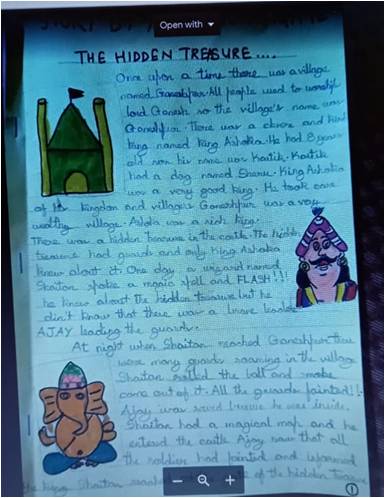 Open with
THE HIDDEN TREASURE....
Once upon a time there was a village
named Ganeshpur. All people used to worship
lord Ganesh so the village's name was
Ganeshpur. There was a clever and kind
king named king Ashoka. He had 8 years
old son his name was Kartik. Kartik
had a dog named Sheru. King Ashoka
was a very good king. He took care
of his kingdom and villages. Ganeshpur was a very
wealthy village. Ashoka was a rich king.
There was a hidden treasure in the castle. The hidden
treasure had guards and only King Ashoka
knew about it. One day a named
Shaitan spoke a magic spell and FLASH!!!
he knew about the hidden treasure but he
din't know that there was a brave leader
AJAY leading the guards.
At night when Shaitan reached Ganeshpur there
were many guards roaming in the village
Shaitan the ball and smoke
came out of it. All the guards fainted!!
Ajay was saved because he was inside.
Shaitan had a magical map and he
entered the castle Ajay saw that all
the soldier had fainted and informed
the king. Shaitan of the hidden treasure